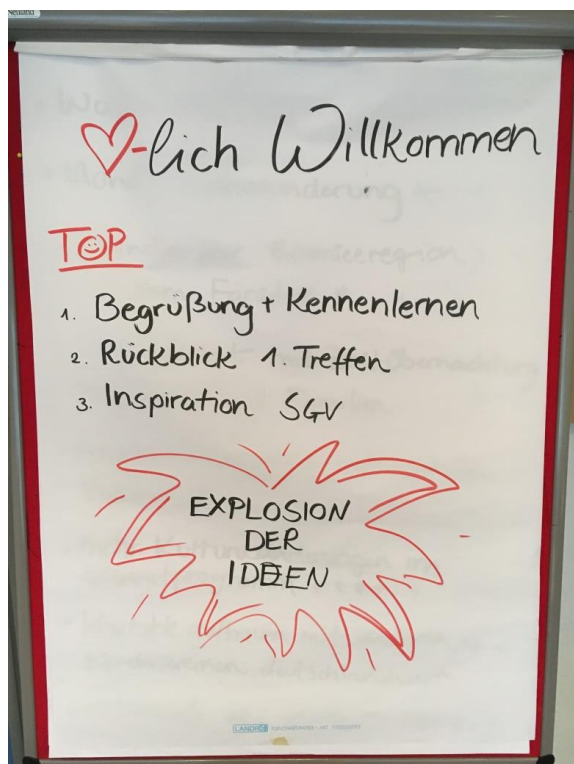 ♡-lich Willkommen
TOP
1. Begrüßung + Kennenlernen
2. Rückblick 1. Treffen
3. Inspiration SGV
EXPLOSION
DER
IDEEN